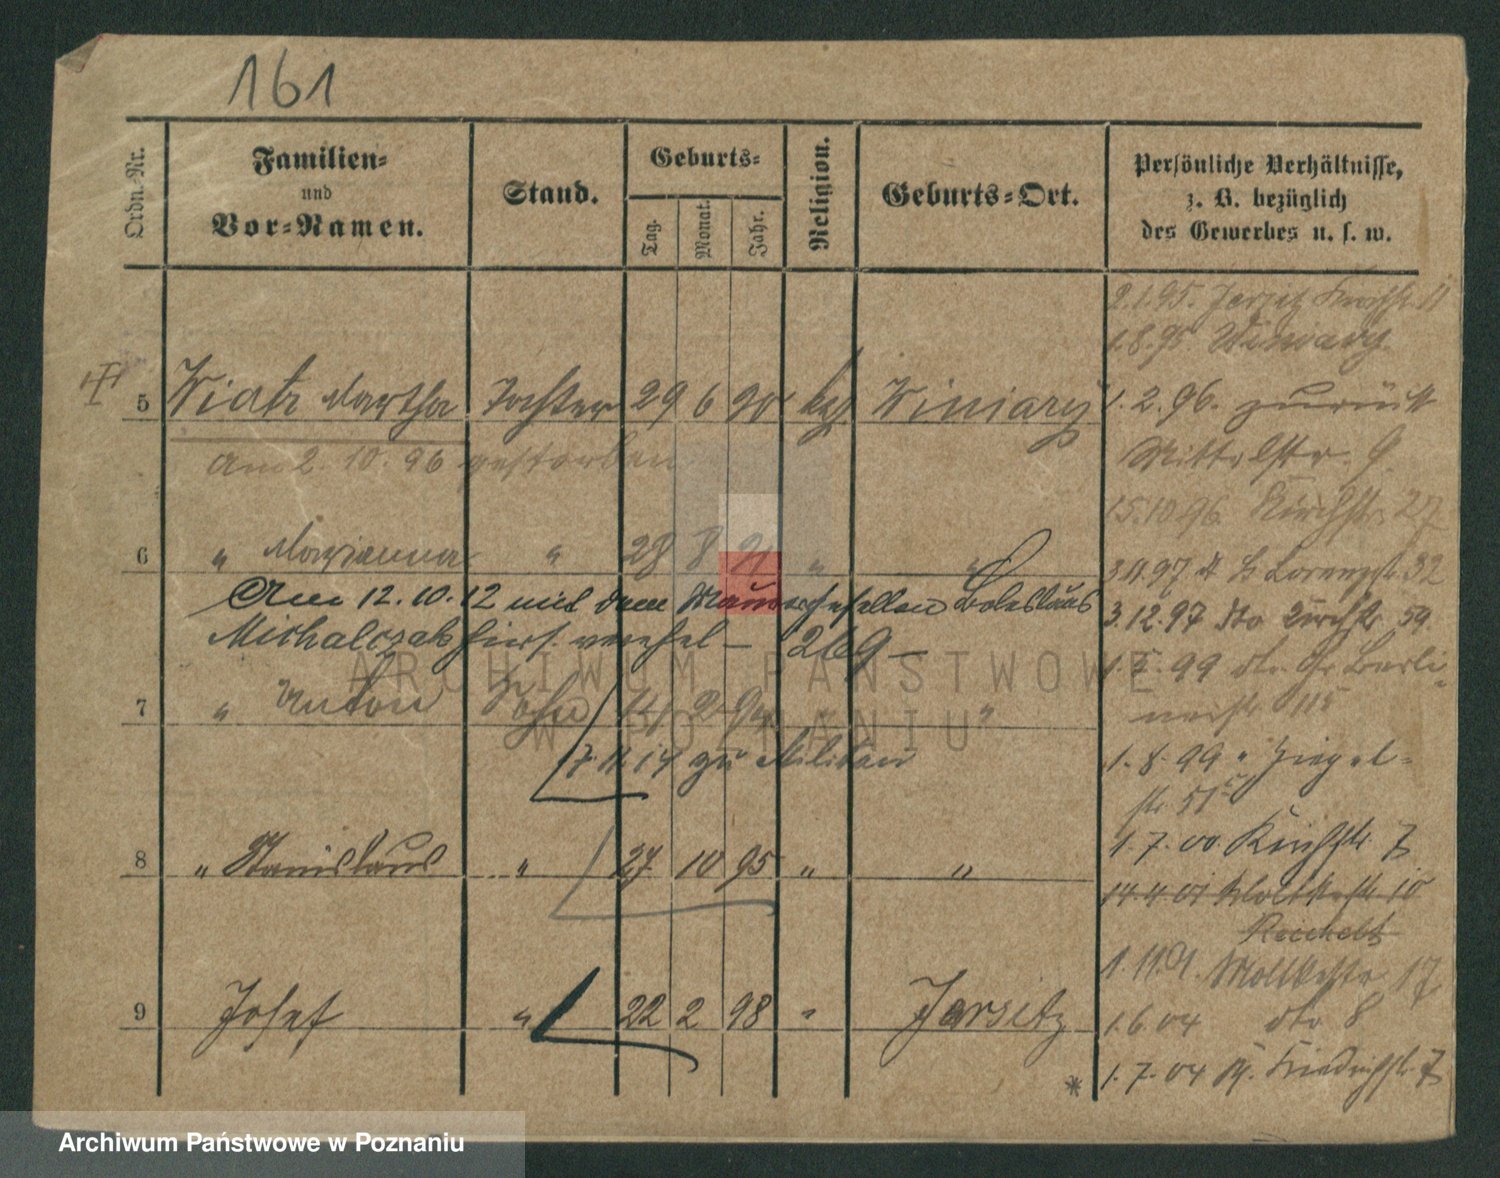 161
Ordn.-Nr.
Familien-
und
Vor-Namen.
Stand.
Geburts-
Tag.
Monat.
Jahr.
Religion.
Geburts-Ort.
Persönliche Verhältnisse,
z. B. bezüglich
des Gewerbes u. s. w.
2.1.95. Jersitz 11
1.8.95 Winiary
5 Wiatr Martha Tochter 29 6 90 kath Winiary 1.2.96. zurück
am 2.10.96 gestorben Mittelstr. 9
15.10.96. Kirchstr. 27
6 " Marianna " 28 8 91 " " 3.11.97 Lorenzstr. 32
Am 12.10.12 mit dem Maurergesellen Boleslaus 3.12.97 dto Kirchstr. 59
Michalczak hier verehel – 269 –
99 dto. Gr Berli-
nerstr. 115
7 " Anton Sohn 14 2 94 " "
7.11.14 zu Militär 1.8.99 " Ziegel-
str 51
8 " Stanislaus " 27 10 95 " " 1.7.00 Kirchstr. 7
14.4.01 Moltkestr. 10
Reichelt
1.11.01. Moltkestr. 17
9 Josef " 22 2 98 " Jersitz 1.6.04 dto 8
* 1.7.04 Friedrichstr. 7
ARCHIWUM PAŃSTWOWE
W POZNANIU
Archiwum Państwowe w Poznaniu